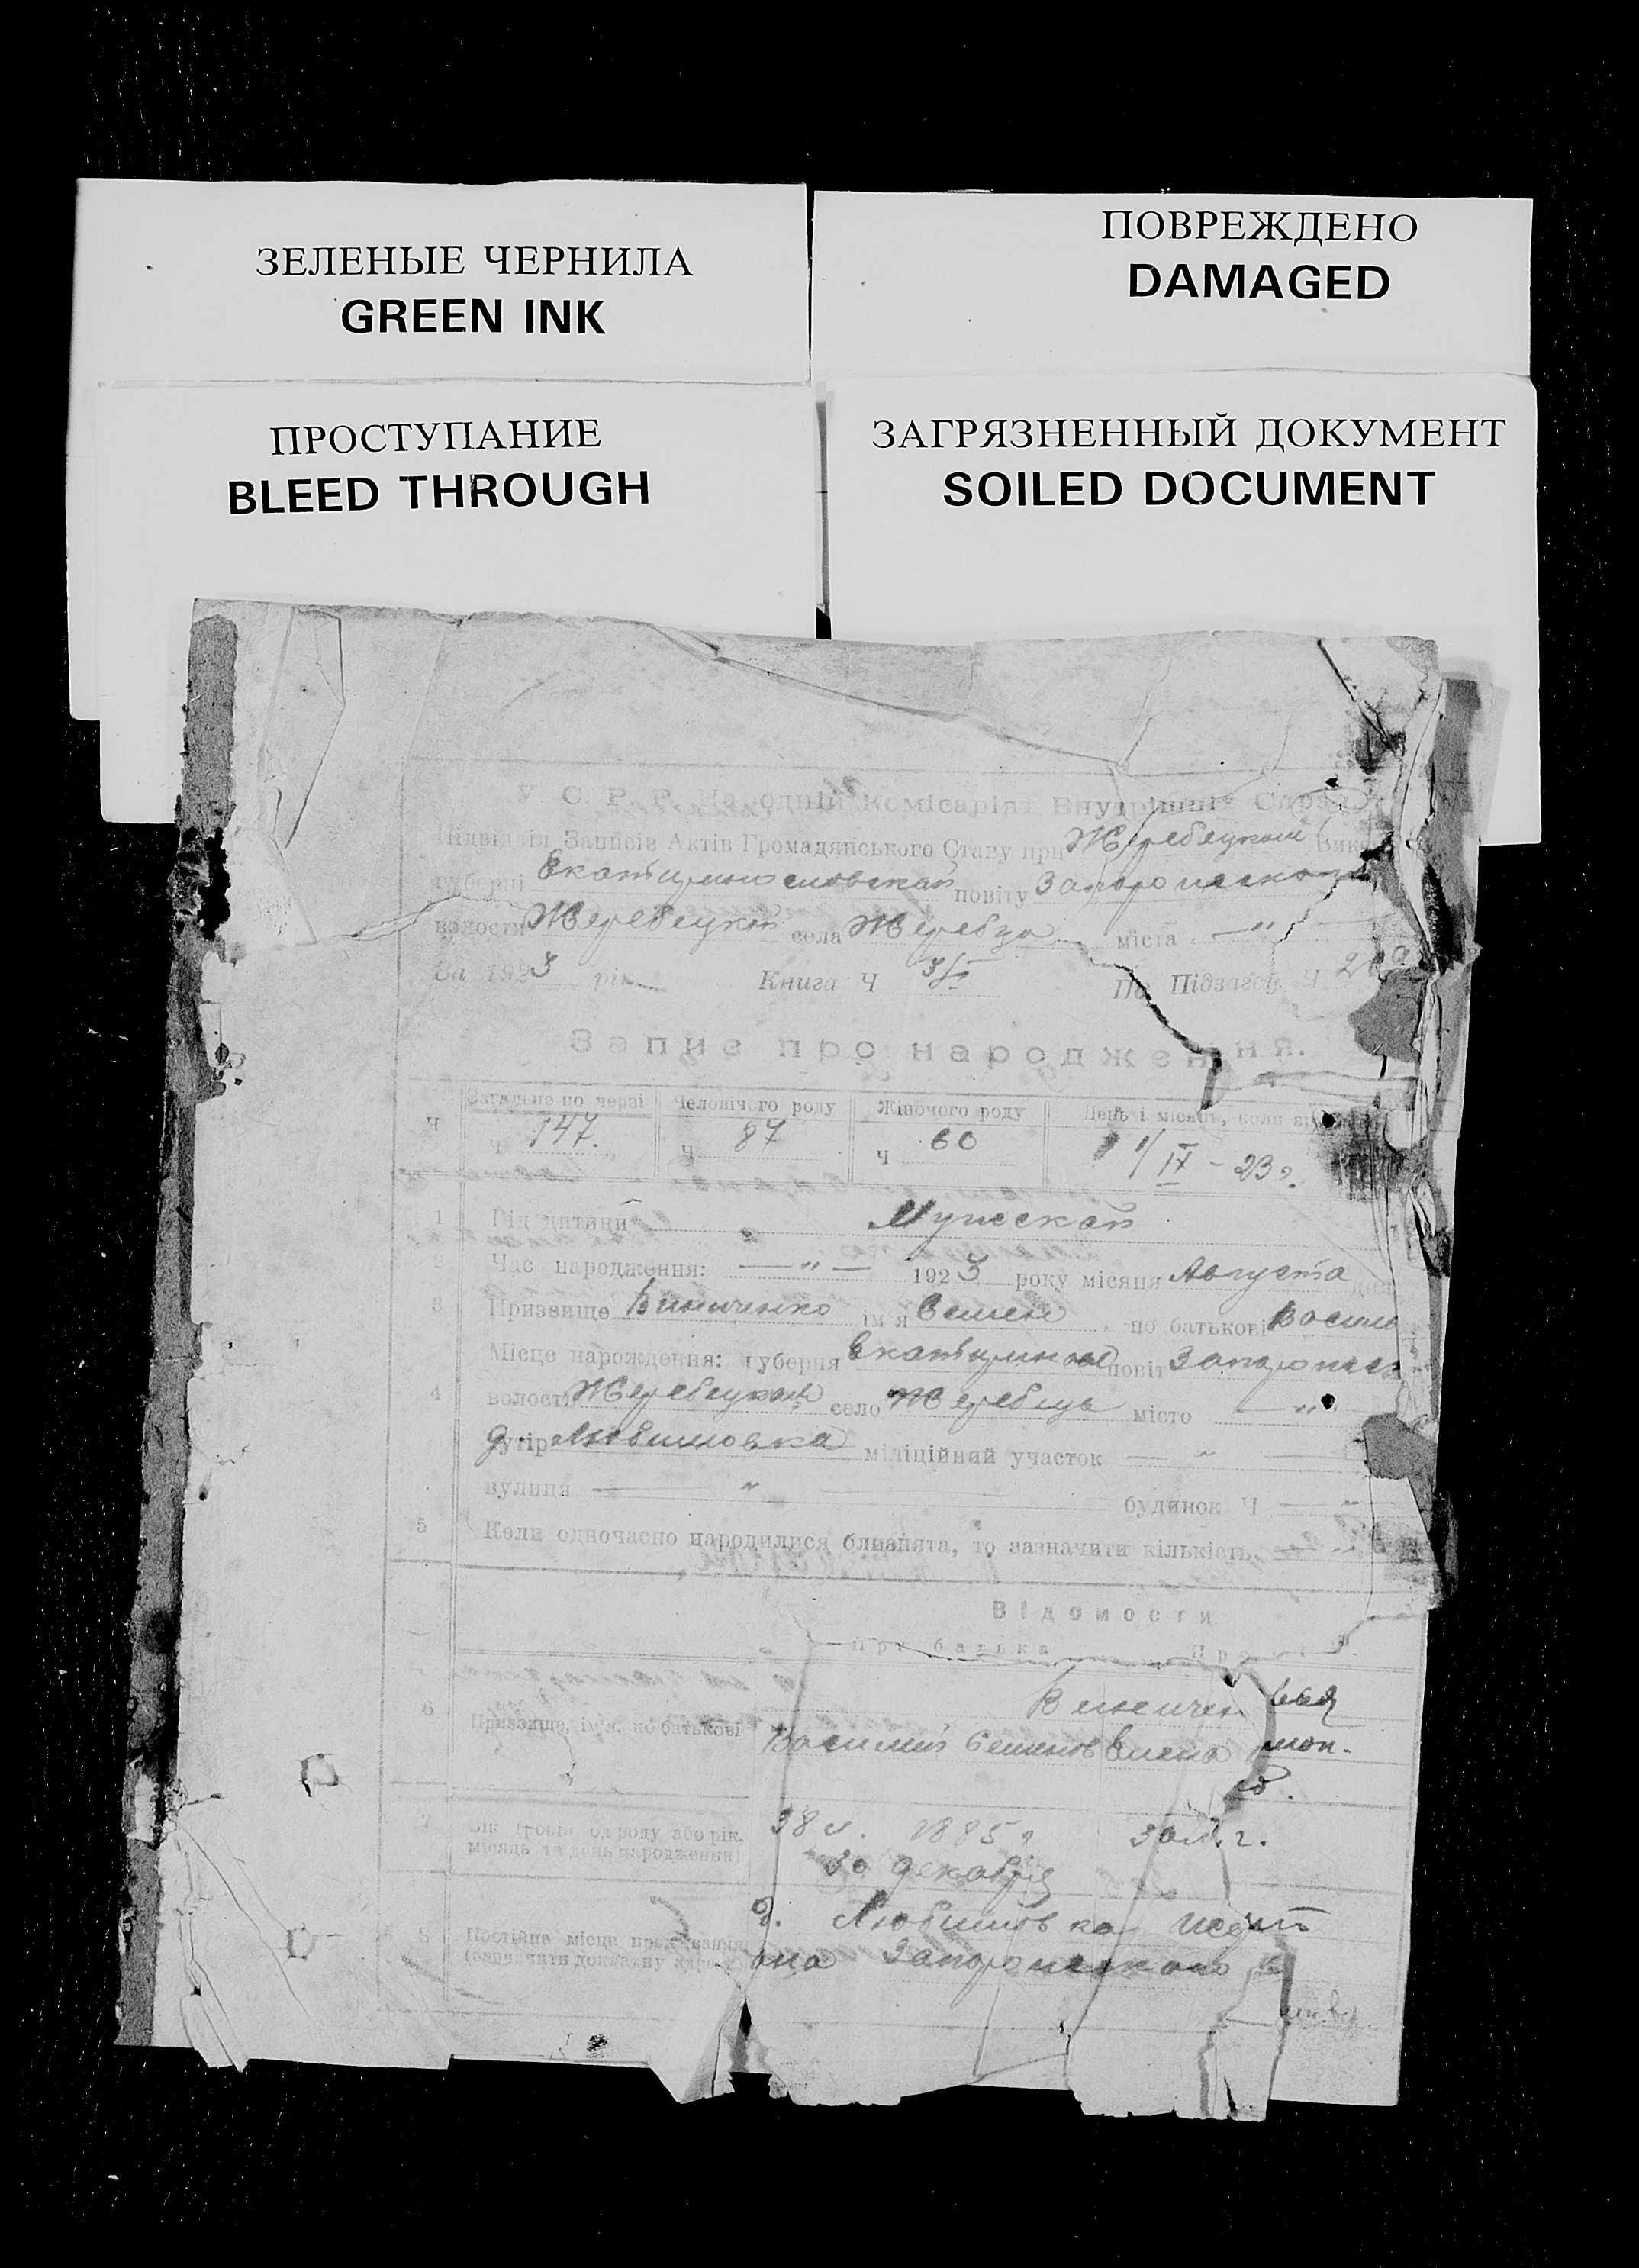 ЗЕЛЕНЫЕ ЧЕРНИЛА
GREEN INK
ПОВРЕЖДЕНО
DAMAGED
ПРОСТУПАНИЕ
BLEED THROUGH
ЗАГРЯЗНЕННЫЙ ДОКУМЕНТ
SOILED DOCUMENT
У. С. Р. Р. Народній Комісаріят Внутрішніх Справ
Підвідділ Записів Актів Громадянського Стану при Жеребецком Вик
губерні Екатеринославской повіту Запорожского
волости Жеребецкой села Жеребца міста — " —
За 1923 рік Книга Ч Підзагсу Ч
Запис про народження.
Ч Загально по черзі Человічого роду Жіночого роду День і місяць, коли
Ч 147. Ч 87 Ч 60 1/IX - 23 г.
1 Рід дитини Мужской
2 Час народження: — " — 1923 року місяця Августа
3 Призвище Виниченко ім'я Семен по батькові Васил
4 Місце народження: губерня повіт
волости Жеребецкой село Жеребец місто — "
Хутір Любимовка міліційний участок — " —
вулиця — " — будинок Ч — "
5 Коли одночасно народилися близнята, то зазначити кількість — "
Відомости
Про батька
6 Призвище, ім'я, по батькові Виничен
Василий Семенов Елена
7 38 л. 1885 г. 30 л. г.
місяць та день народження) 30 декабря
8 Постійне місце проживання д. Любимовка
(зазначити докладну адресу) Запорожского